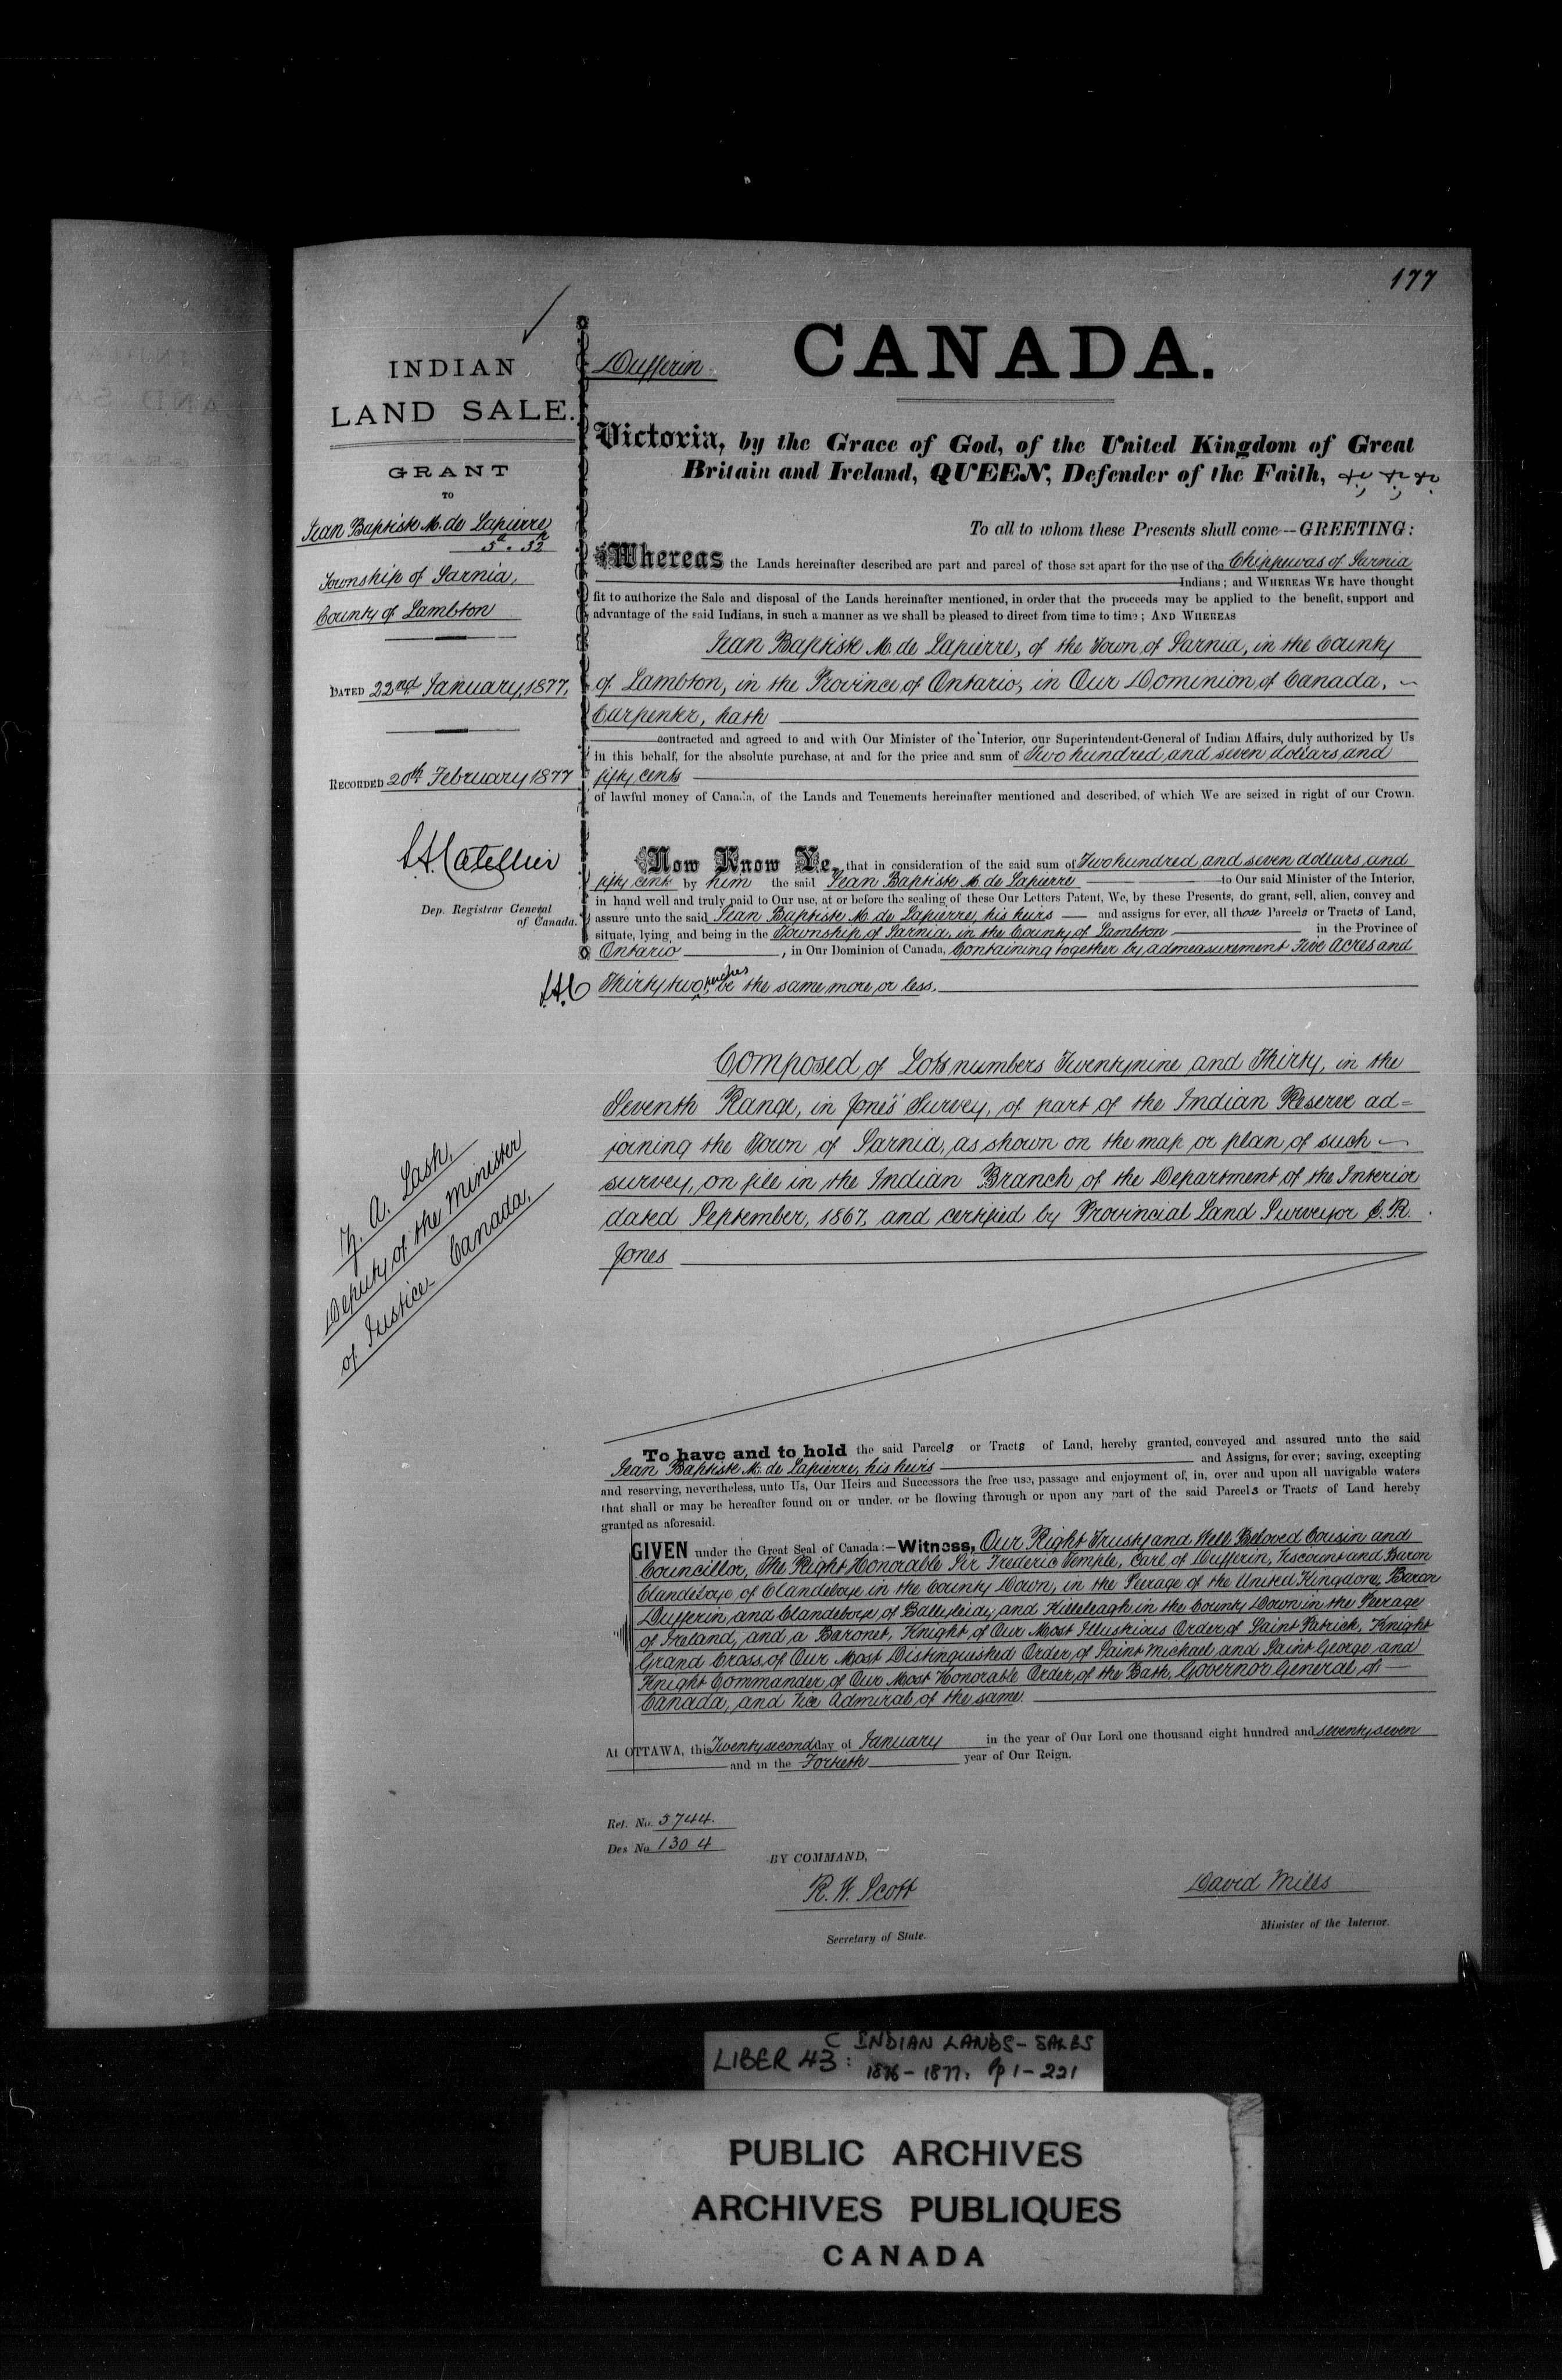 177
INDIAN
LAND SALE.
GRANT
TO
Jean Baptiste M. de Lapierre
5a. 32p
Township of Sarnia,
County of Lambton
DATED 22nd January, 1877,
RECORDED 20th February, 1877
Dep. Registrar General
of Canada.
Z. A. Lash,
Deputy of the Minister
of Justice Canada.
Dufferin.
CANADA.
Victoria, by the Grace of God, of the United Kingdom of Great
Britain and Ireland, QUEEN, Defender of the Faith, &c, &c, &c.
To all to whom these Presents shall come--GREETING:
Whereas the Lands hereinafter described are part and parcel of those set apart for the use of the Chippewas of Sarnia
Indians; and WHEREAS WE have thought
fit to authorize the Sale and disposal of the Lands hereinafter mentioned, in order that the proceeds may be applied to the benefit, support and
advantage of the said Indians, in such a manner as we shall be pleased to direct from time to time; AND WHEREAS
Jean Baptiste M. de Lapierre, of the Town of Sarnia, in the County
of Lambton, in the Province of Ontario, in Our Dominion of Canada,
Carpenter, hath
contracted and agreed to and with Our Minister of the Interior, our Superintendent-General of Indian Affairs, duly authorized by Us
in this behalf, for the absolute purchase, at and for the price and sum of Two hundred and seven dollars and
fifty cents
of lawful money of Canada, of the Lands and Tenements hereinafter mentioned and described, of which We are seized in right of our Crown.
Now Know Ye, that in consideration of the said sum of Two hundred and seven dollars and
fifty cents by him the said Jean Baptiste M. de Lapierre to Our said Minister of the Interior,
in hand well and truly paid to Our use, at or before the sealing of these Our Letters Patent, We, by these Presents, do grant, sell, alien, convey and
assure unto the said Jean Baptiste M. de Lapierre, his heirs and assigns for ever, all those Parcels or Tracts of Land,
situate, lying and being in the Township of Sarnia, in the County of Lambton in the Province of
Ontario, in Our Dominion of Canada, Containing together by admeasurement Five Acres and
Thirty two perches be the same more or less.
Composed of Lots numbers Twentynine and Thirty, in the
Seventh Range, in Jones' Survey, of part of the Indian Reserve ad=
joining the Town of Sarnia, as shown on the map or plan of such
survey, on file in the Indian Branch of the Department of the Interior
dated September, 1867, and certified by Provincial Land Surveyor C. R.
Jones
To have and to hold the said Parcels or Tracts of Land, hereby granted, conveyed and assured unto the said
Jean Baptiste M. de Lapierre, his heirs and Assigns, for ever; saving, excepting
and reserving, nevertheless, unto Us, Our Heirs and Successors the free use, passage and enjoyment of, in, over and upon all navigable waters
that shall or may be hereafter found on or under, or be flowing through or upon any part of the said Parcels or Tracts of Land hereby
granted as aforesaid.
GIVEN under the Great Seal of Canada:—Witness, Our Right Trusty and Well Beloved Cousin and
Councillor, The Right Honorable Sir Frederic Temple, Earl of Dufferin, Viscount and Baron
Clandeboye of Clandeboye in the County Down, in the Peerage of the United Kingdom, Baron
Dufferin and Clandeboye of Balleyleidy, and Killeleagh in the County Down in the Peerage
of Ireland, and a Baronet, Knight of Our Most Illustrious Order of Saint Patrick, Knight
Grand Cross of Our Most Distinguished Order of Saint Michael and Saint George and
Knight Commander of Our Most Honorable Order of the Bath, Governor General of
Canada, and Vice Admiral of the same.
At OTTAWA, this Twentysecond day of January in the year of Our Lord one thousand eight hundred and seventyseven
and in the Fortieth year of Our Reign.
Ref. No. 5744.
Des No. 1304
BY COMMAND,
R. W. Scott
Secretary of State.
David Mills
Minister of the Interior.
LIBER 43: C INDIAN LANDS - SALES
1876 - 1877. Pp 1 - 221
PUBLIC ARCHIVES
ARCHIVES PUBLIQUES
CANADA